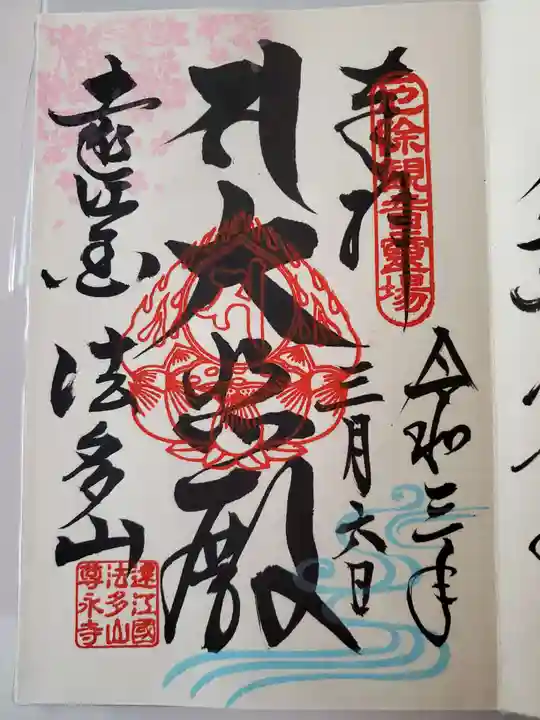 奉拝
厄除観音霊場
令和三年
三月六日
大悲殿
遠江國
法多山
遠江國
法多山
尊永寺